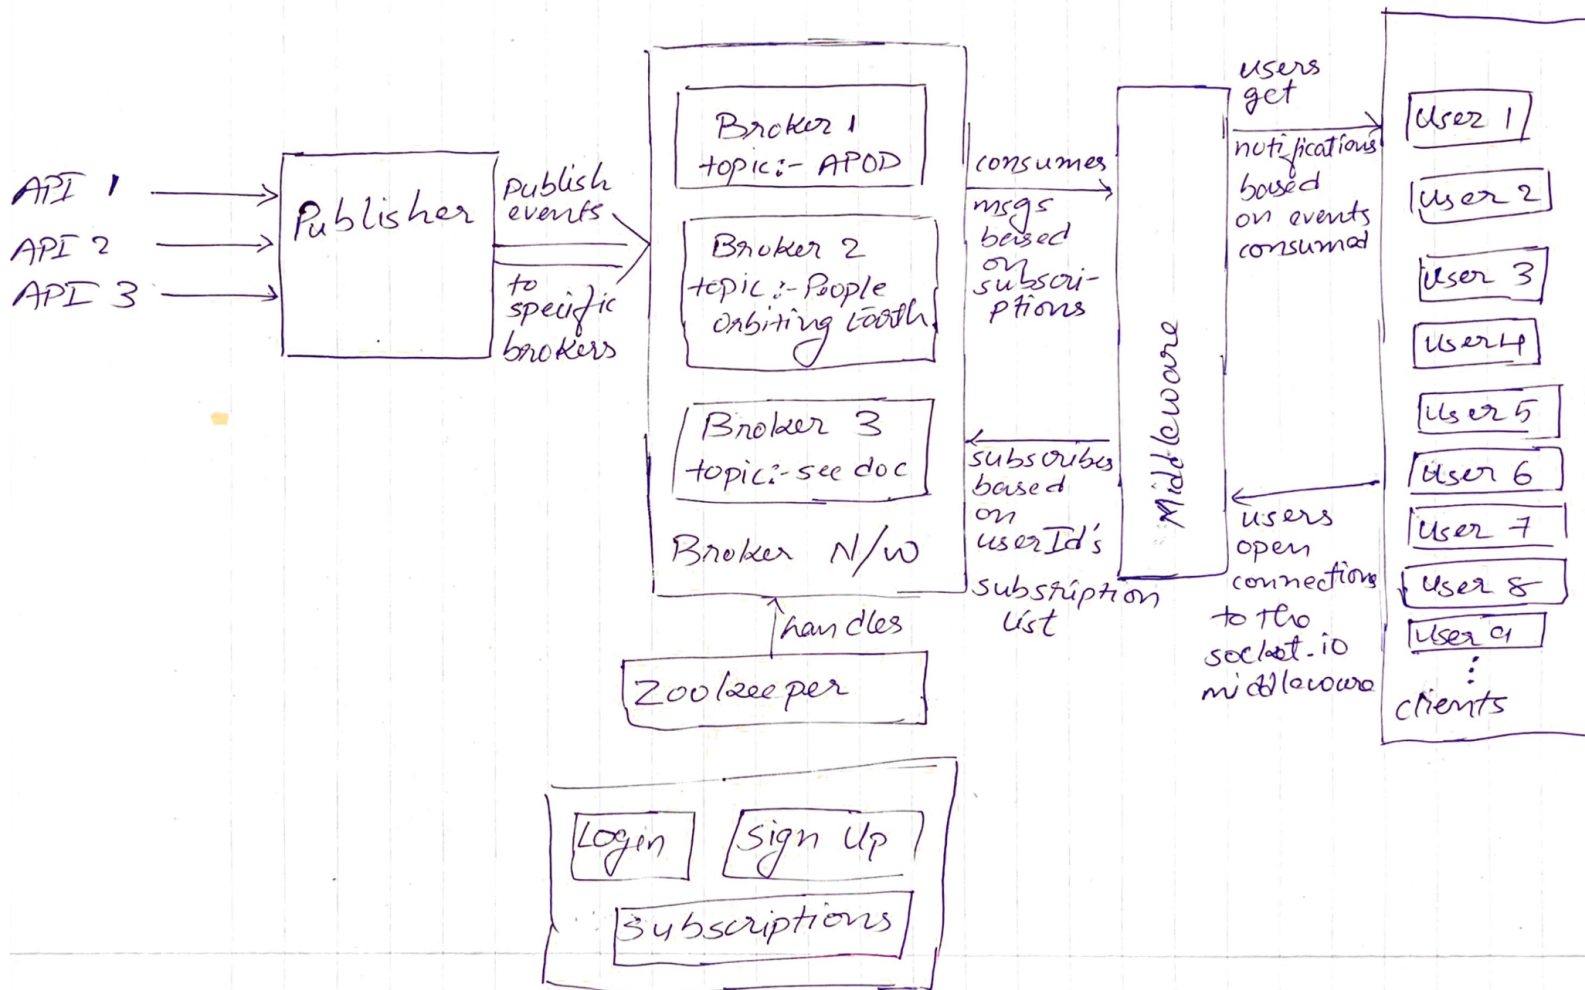 API 1
API 2
API 3
Publisher
Publish
events
to
specific
brokers
Broker 1
topic:- APOD
Broker 2
topic:- People
Orbiting Earth
Broker 3
topic:- see doc
Broker N/W
handles
Zookeeper
consumes
msgs
based
on
subscri-
ptions
subscribes
based
on
userId's
subscription
list
Middleware
users
get
notifications
based
on events
consumed
users
open
connections
to the
socket.io
middleware
User 1
User 2
User 3
User 4
User 5
User 6
User 7
User 8
User 9
⋮
clients
Login
Sign Up
Subscriptions